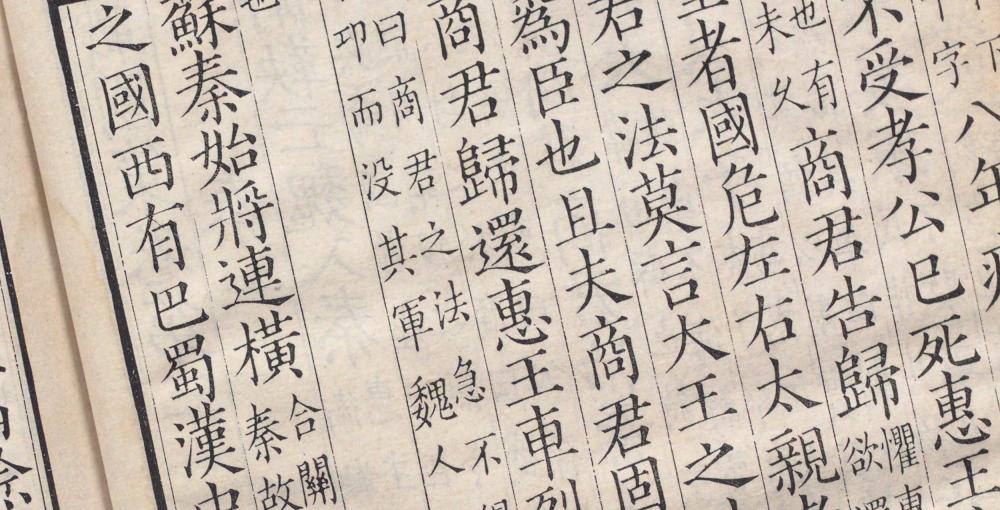 下
字
八年疾
不受孝公巳死惠王
也有
未乆
商君告歸
懼
欲還
者國危左右太親
君之法莫言大王之
為臣也且夫商君固
商君歸還惠王車列
曰商君之法急不
卬而没其軍魏人
蘇秦始將連橫
合關
秦故
之國西有巴蜀漢中